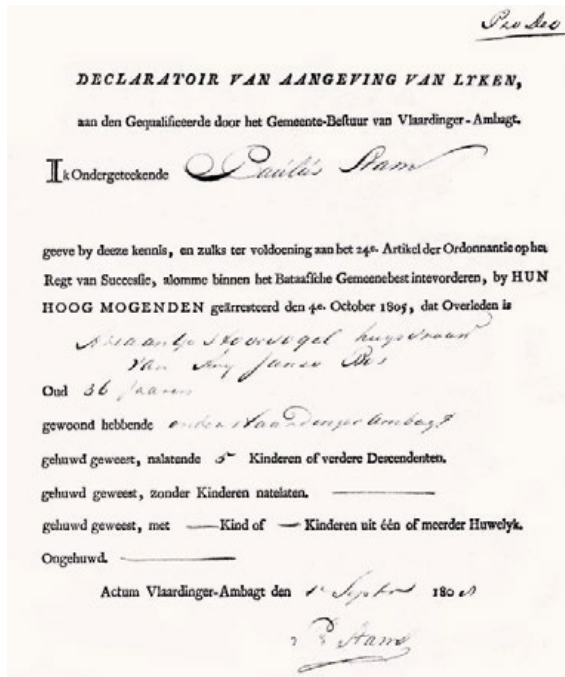 Pro Deo
DECLARATOIR VAN AANGEVING VAN LYKEN,
aan den Gequalificeerde door het Gemeente-Bestuur van Vlaardinger-Ambagt.
Ik Ondergeteekende Paulus Stam
geeve by deeze kennis, en zulks ter voldoening aan het 24e. Artikel der Ordonnantie op het
Regt van Successie, alomme binnen het Bataafsche Gemeenebest intevorderen, by HUN
HOOG MOGENDEN geärresteerd den 4e. October 1805, dat Overleden is
Stoorvogel huysvrouw
van Jansz Bos
Oud 36 jaaren
gewoond hebbende onder Vlaardinger Ambagt
gehuwd geweest, nalatende 5 Kinderen of verdere Descendenten.
gehuwd geweest, zonder Kinderen natelaten.
gehuwd geweest, met — Kind of — Kinderen uit één of meerder Huwelyk.
Ongehuwd.
Actum Vlaardinger-Ambagt den 1 Septbr 180
P Stam